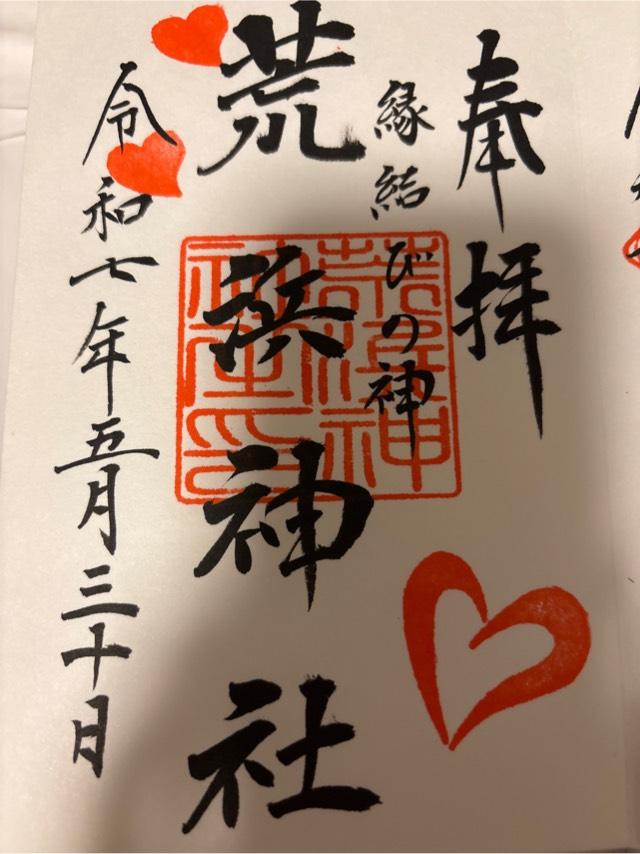 奉拝
縁結びの神
荒浜神社
令和七年五月三十日